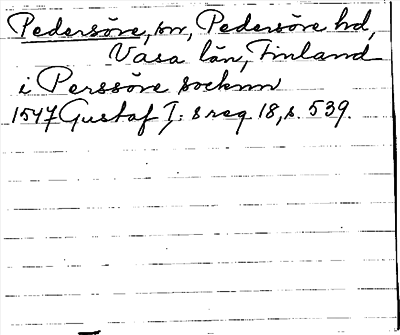 Pedersöre, sn, Pedersöre hd,
Vasa län, Finland
i Perssöre socknn
1547 Gustaf I: s reg 18, s. 539.